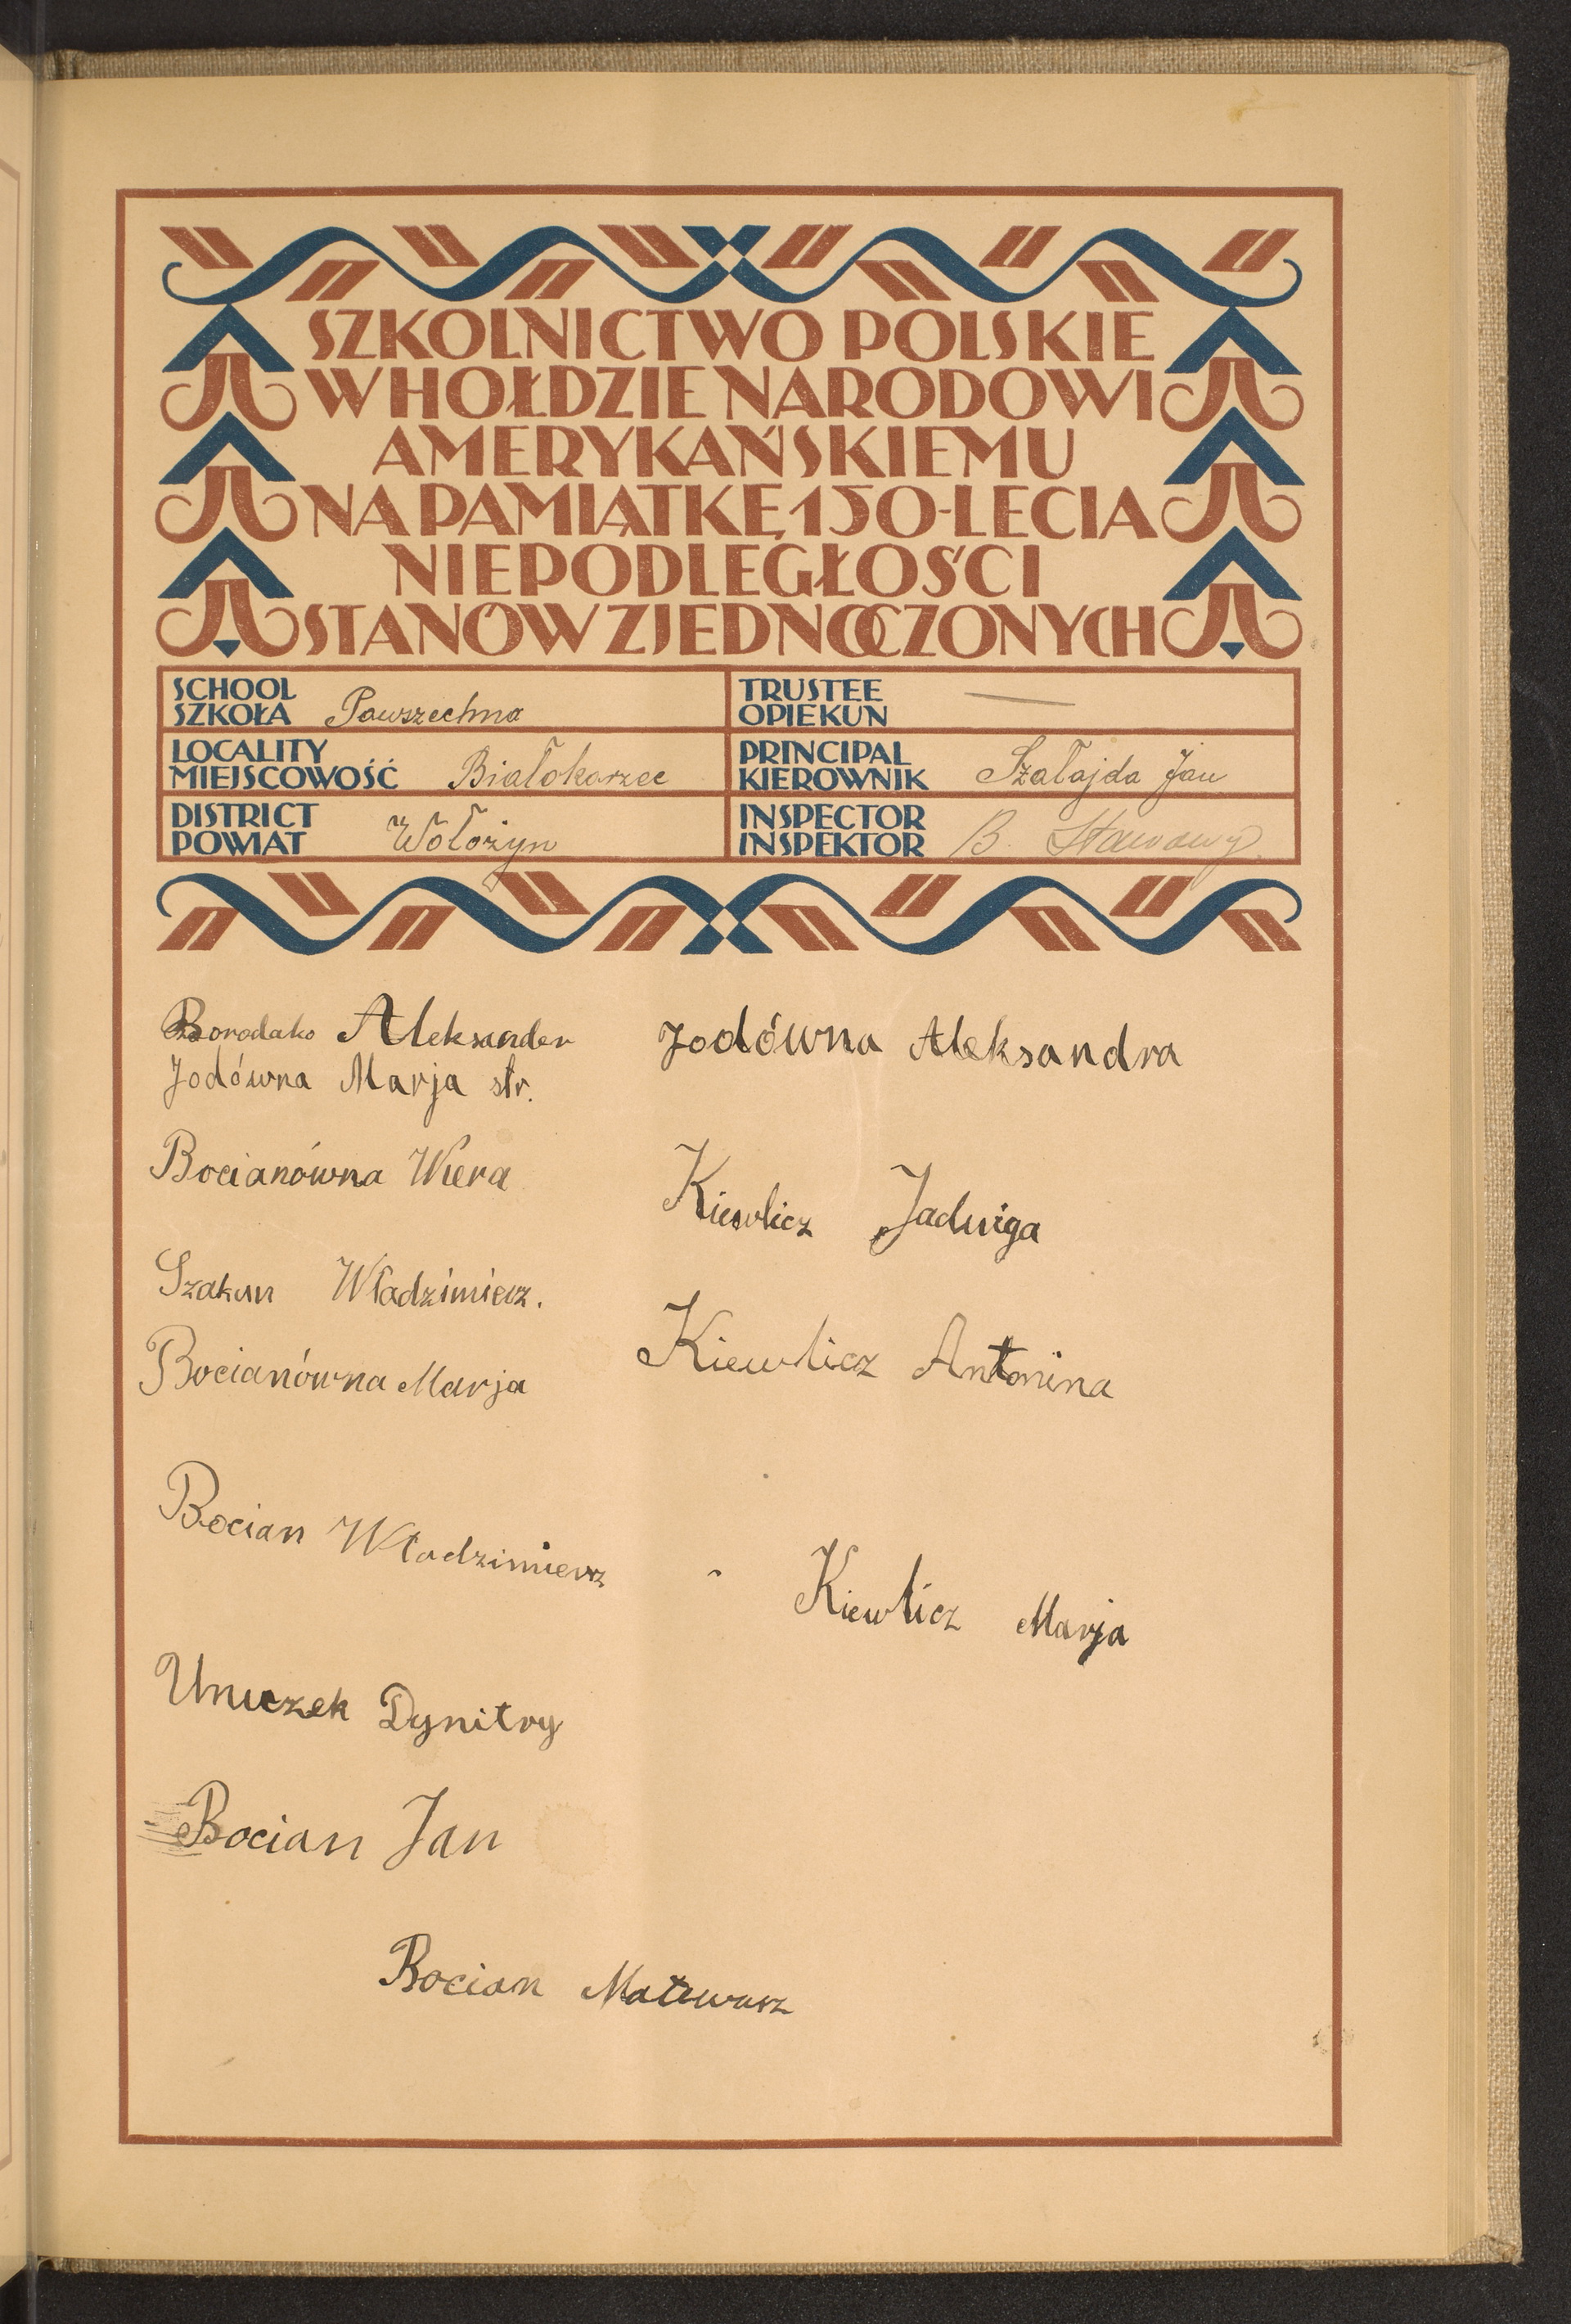 SZKOLNICTWO POLSKIE
W HOŁDZIE NARODOWI
AMERYKAŃSKIEMU
NA PAMIĄTKĘ 150-LECIA
NIEPODLEGŁOŚCI
STANÓW ZJEDNOCZONYCH
SCHOOL
SZKOŁA Powszechna
TRUSTEE
OPIEKUN —
LOCALITY
MIEJSCOWOŚĆ Białokorzec
PRINCIPAL
KIEROWNIK Szałajda Jan
DISTRICT
POWIAT Wołożyn
INSPECTOR
INSPEKTOR B. Stawowy
Borodako Aleksander
Jodówna Marja str.
Bocianówna Wiera
Szakun Władzimierz.
Bocianówna Marja
Bocian Włodzimierz
Unuczek Dymitry
Bocian Jan
Bocian Mateusz
Jodówna Aleksandra
Kiewlicz Jadwiga
Kiewlicz Antonina
Kiewlicz Marja